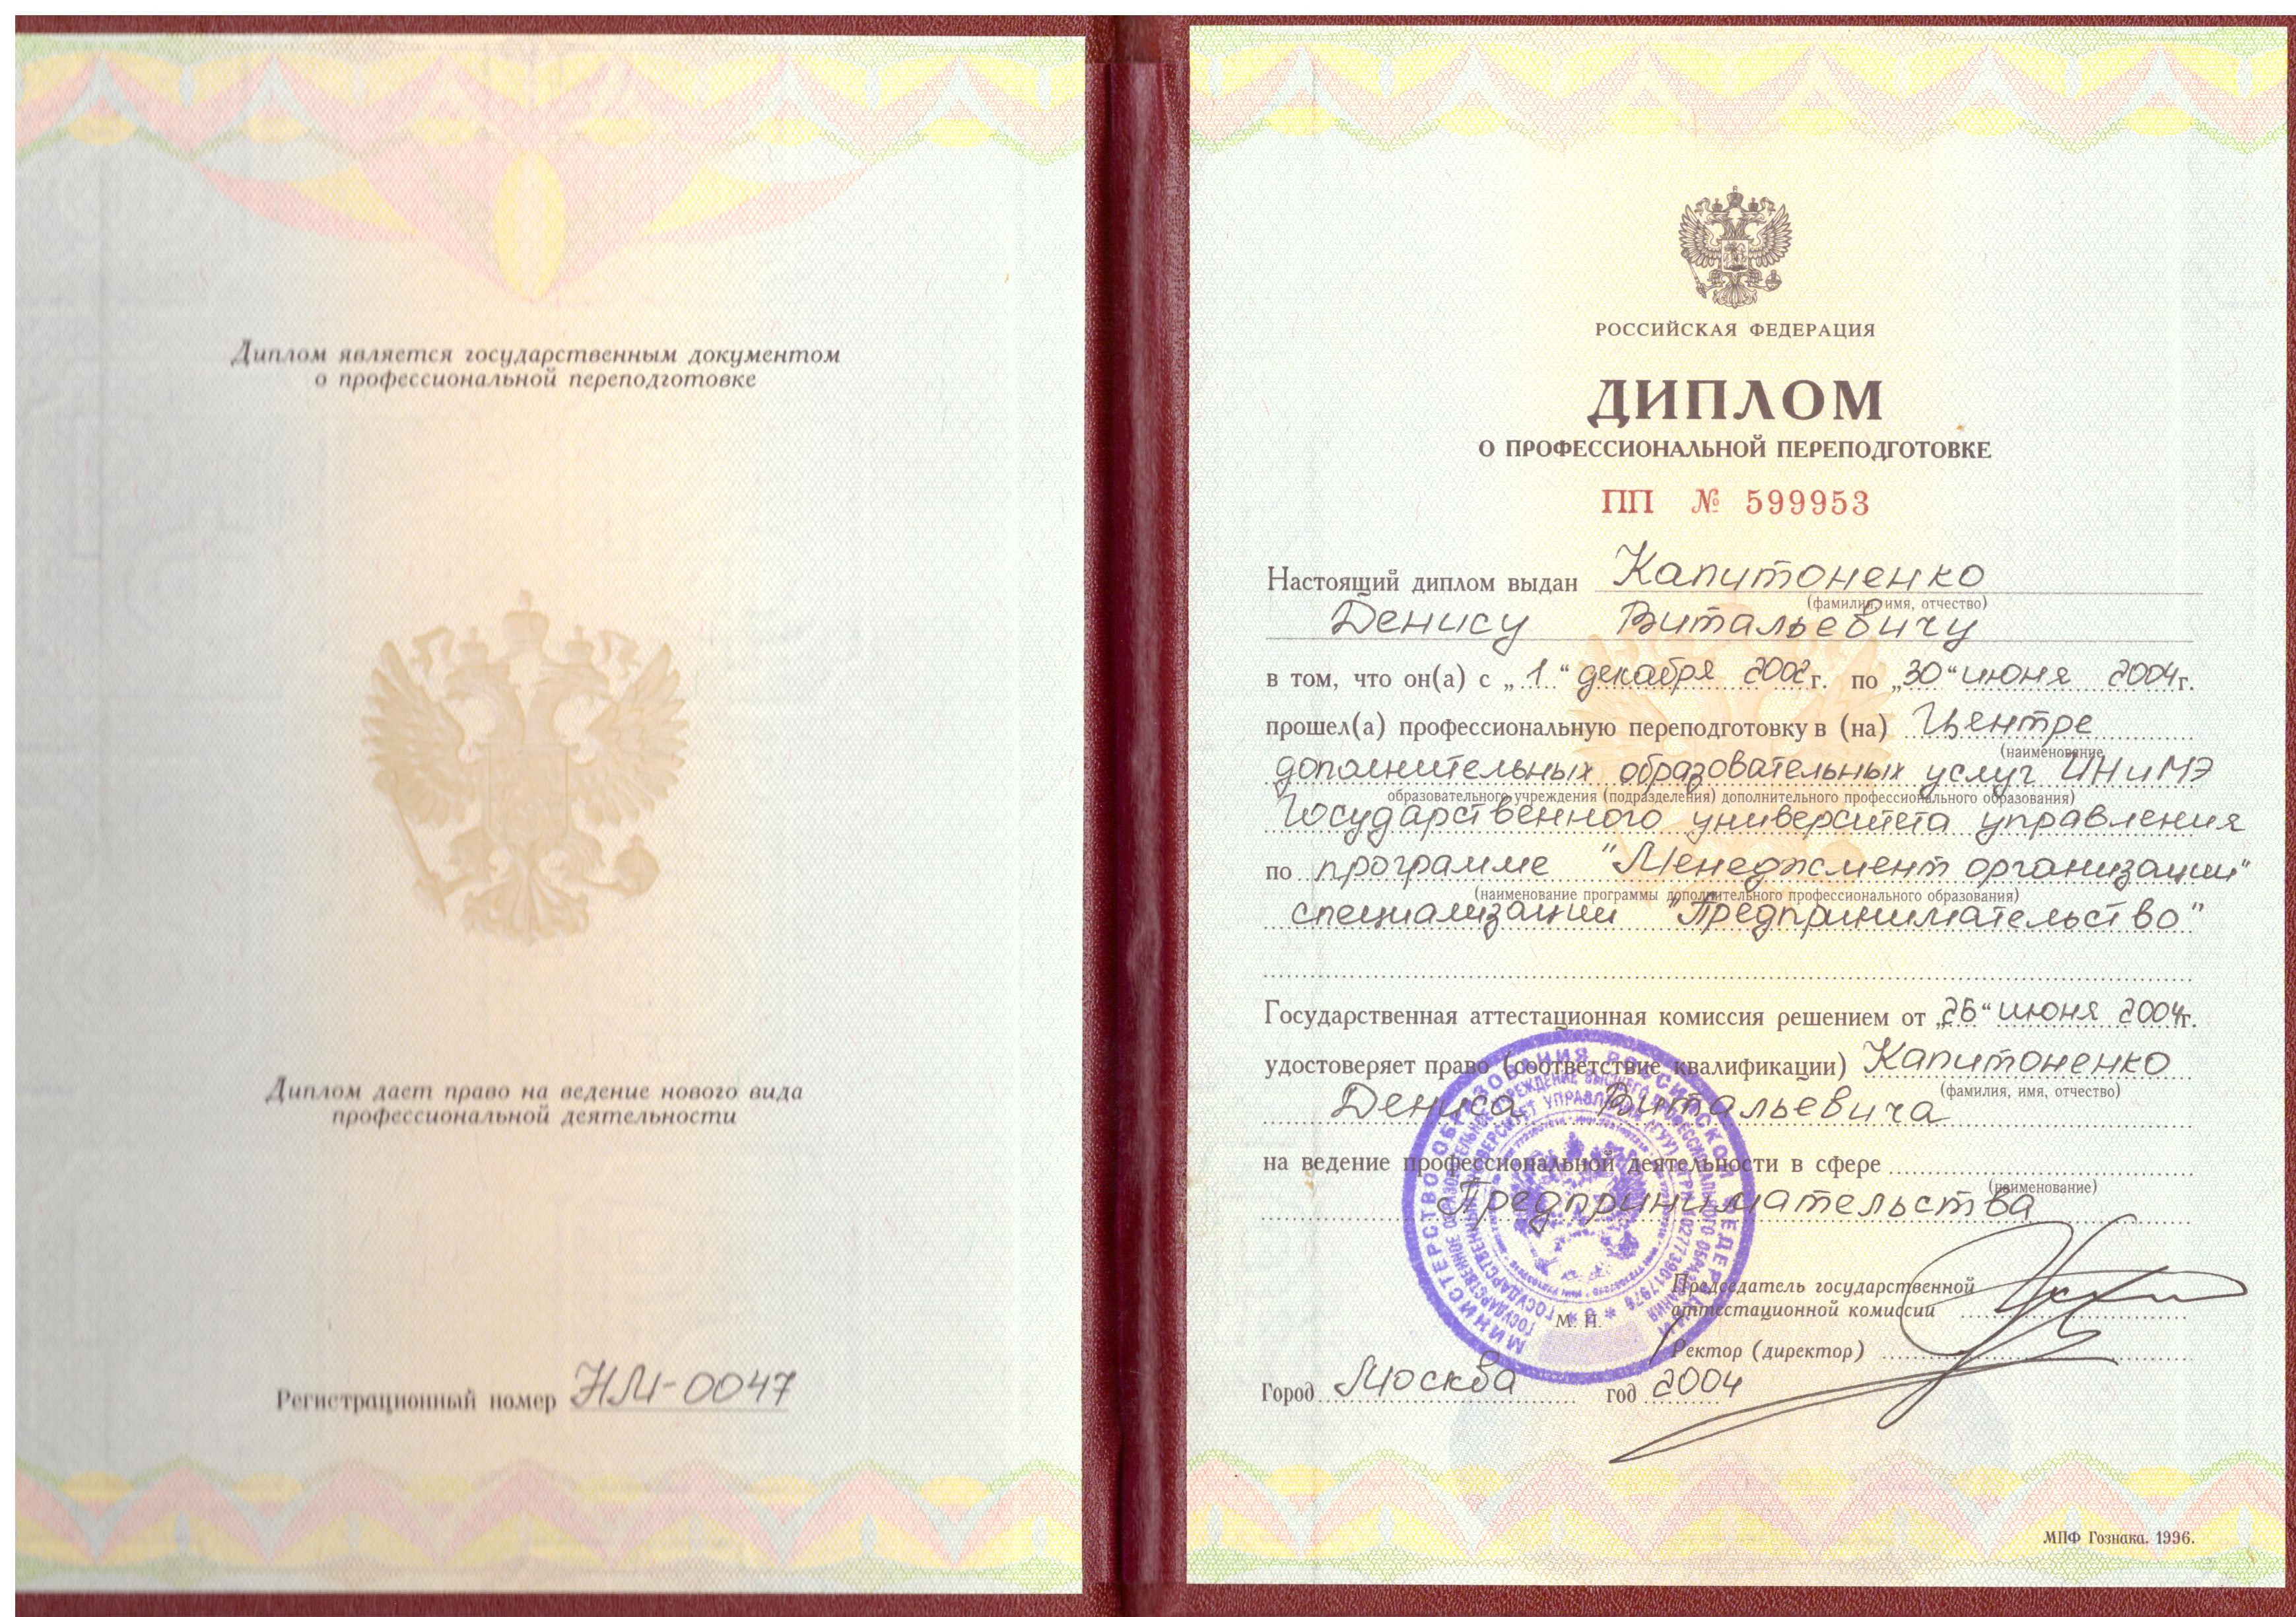 Диплом является государственным документом
о профессиональной переподготовке
Диплом дает право на ведение нового вида
профессиональной деятельности
Регистрационный номер НМ-0047
РОССИЙСКАЯ ФЕДЕРАЦИЯ
ДИПЛОМ
О ПРОФЕССИОНАЛЬНОЙ ПЕРЕПОДГОТОВКЕ
ПП № 599953
Настоящий диплом выдан Капитоненко
(фамилия, имя, отчество)
Денису Витальевичу
в том, что он(а) с „1“ декабря 2002г. по „30“ июня 2004г.
прошел(а) профессиональную переподготовку в (на) Центре
(наименование
дополнительных образовательных услуг ИНиМЭ
образовательного учреждения (подразделения) дополнительного профессионального образования)
Государственного университета управления
по программе "Менеджмент организации"
(наименование программы дополнительного профессионального образования)
специализации "Предпринимательство"
Государственная аттестационная комиссия решением от „26“ июня 2004г.
удостоверяет право (соответствие квалификации) Капитоненко
(фамилия, имя, отчество)
Дениса Витальевича
на ведение профессиональной деятельности в сфере
(наименование)
Предпринимательства
МИНИСТЕРСТВО ОБРАЗОВАНИЯ РОССИЙСКОЙ ФЕДЕРАЦИИ
ГОСУДАРСТВЕННОЕ ОБРАЗОВАТЕЛЬНОЕ УЧРЕЖДЕНИЕ ВЫСШЕГО ПРОФЕССИОНАЛЬНОГО ОБРАЗОВАНИЯ
ГОСУДАРСТВЕННЫЙ УНИВЕРСИТЕТ УПРАВЛЕНИЯ (ГУУ) ОГРН 1027739017976
Председатель государственной
аттестационной комиссии
М. П.
Ректор (директор)
Город Москва год 2004
МПФ Гознака. 1996.